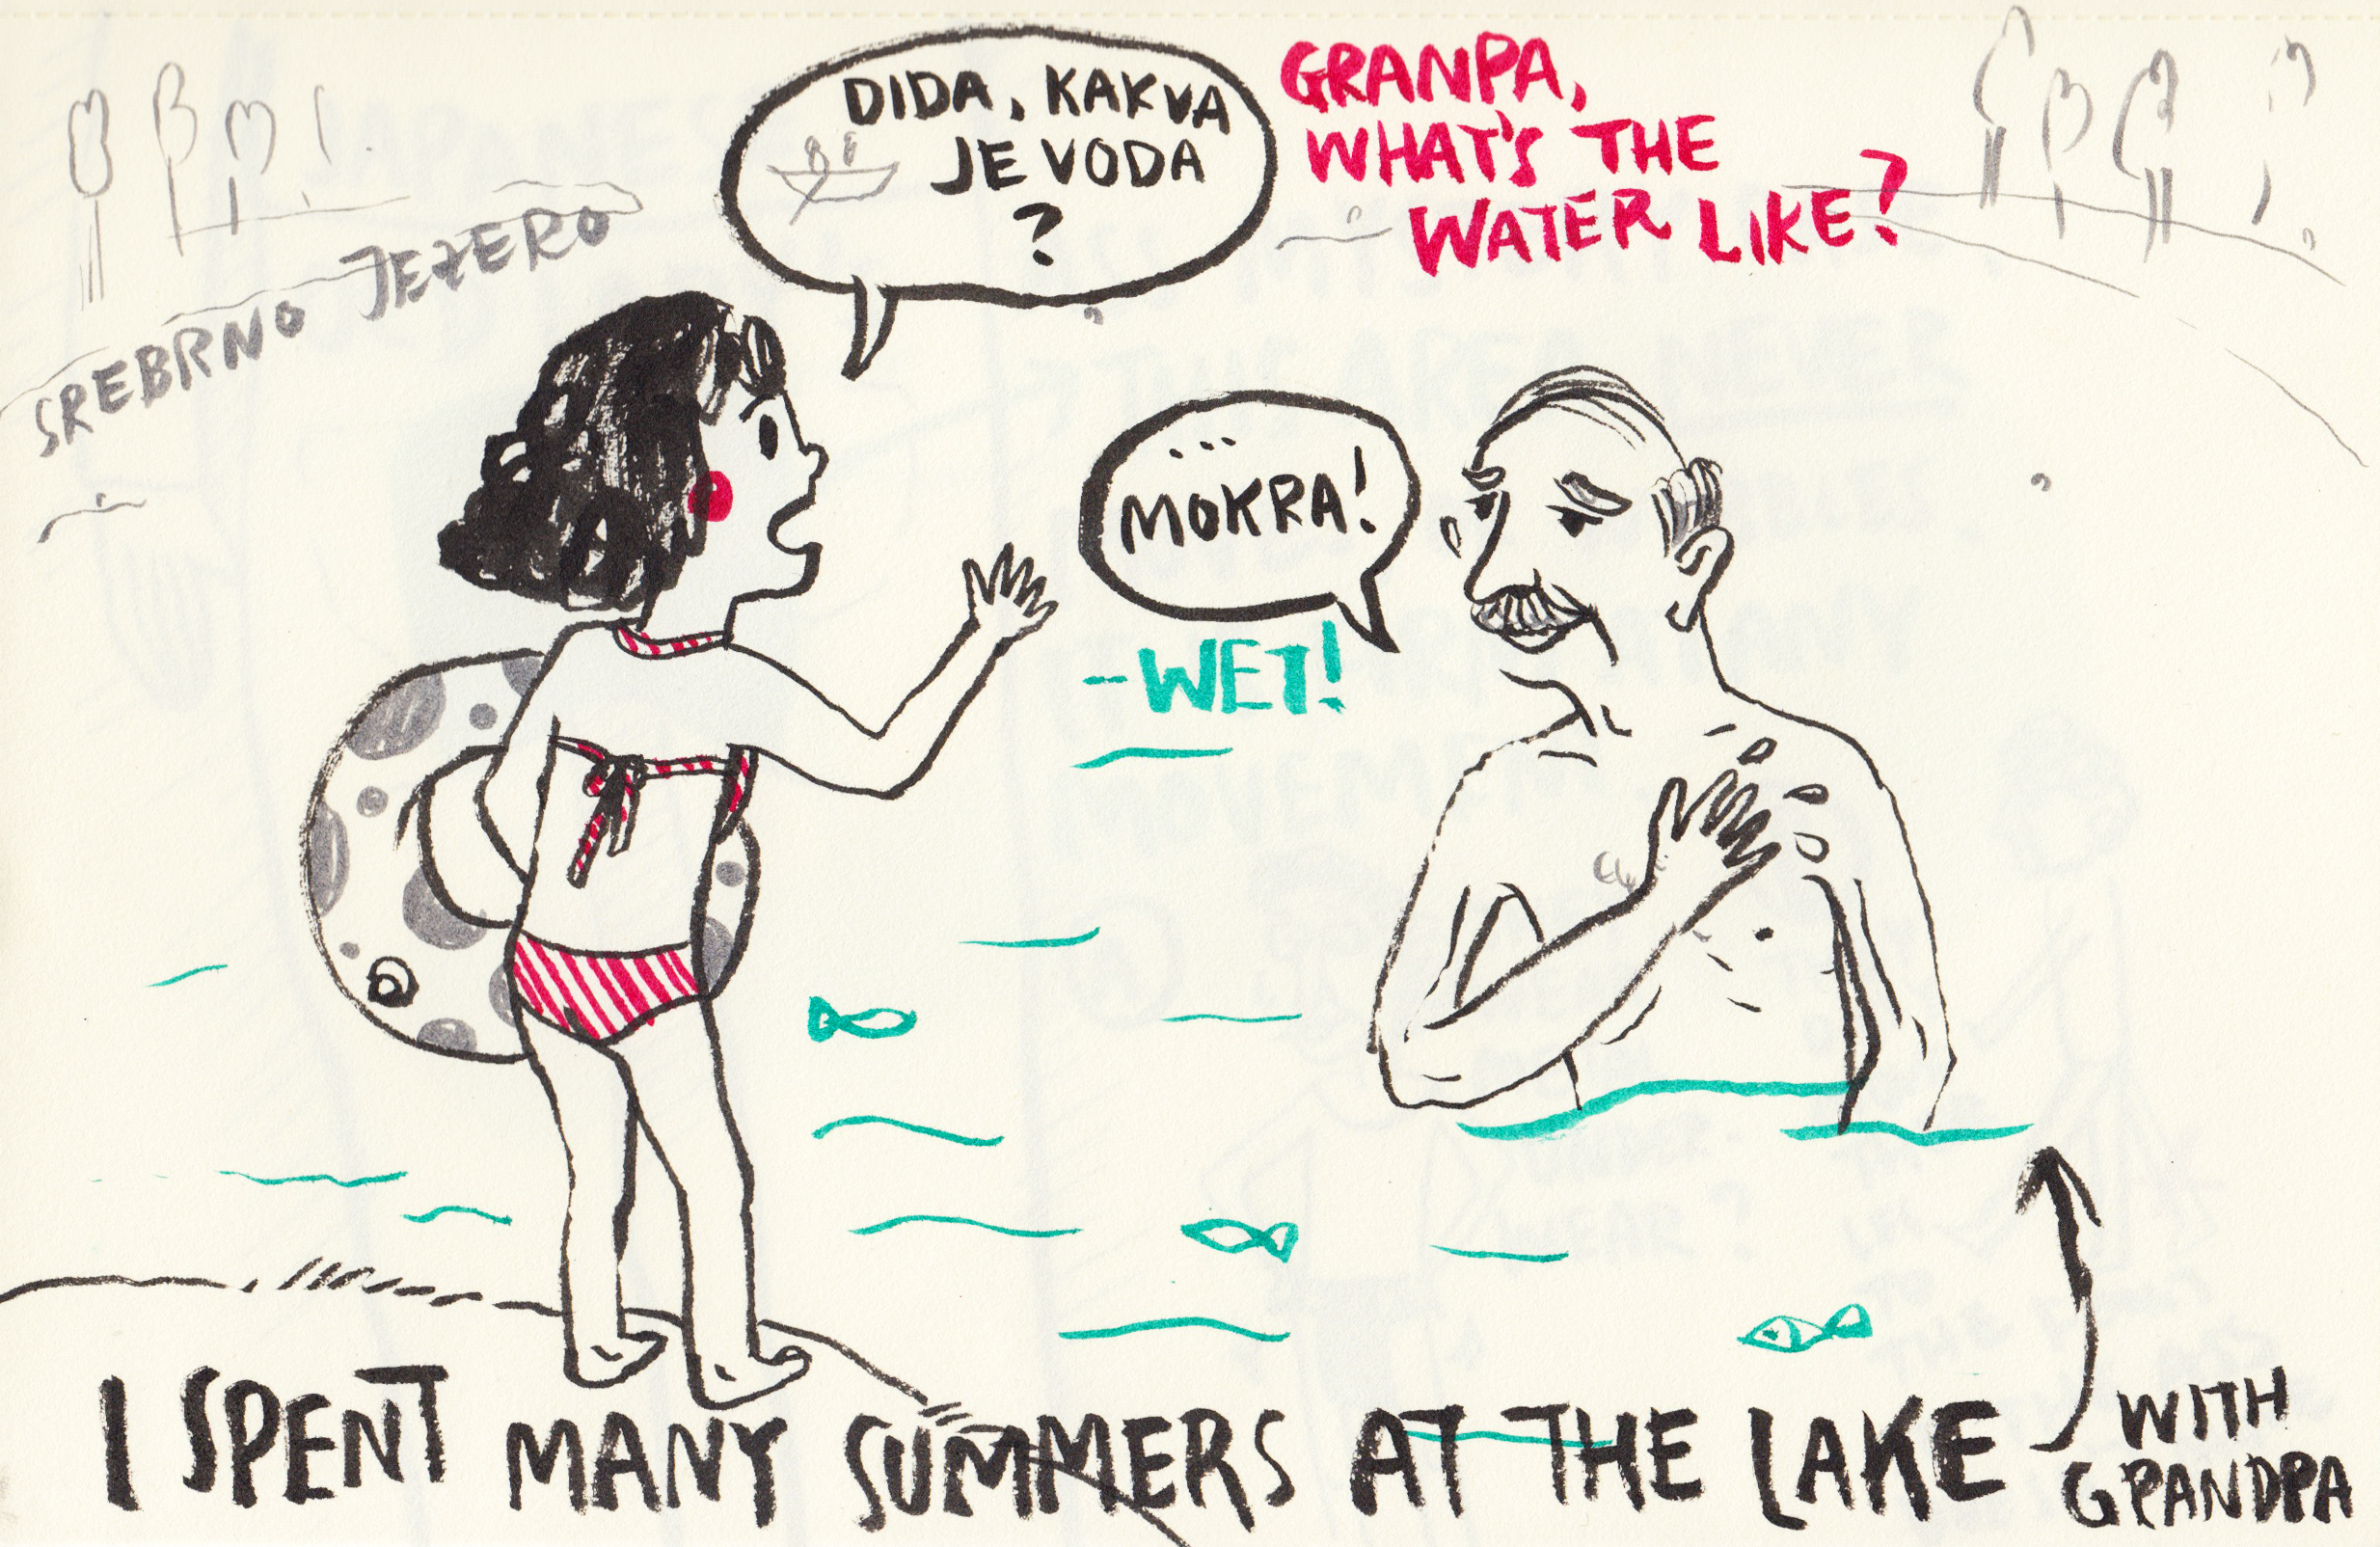 DIDA, KAKVA
JE VODA
?
GRANPA,
WHAT'S THE
WATER LIKE?
SREBRNO JEZERO
...
MOKRA!
-WET!
I SPENT MANY SUMMERS AT THE LAKE
WITH
GRANDPA